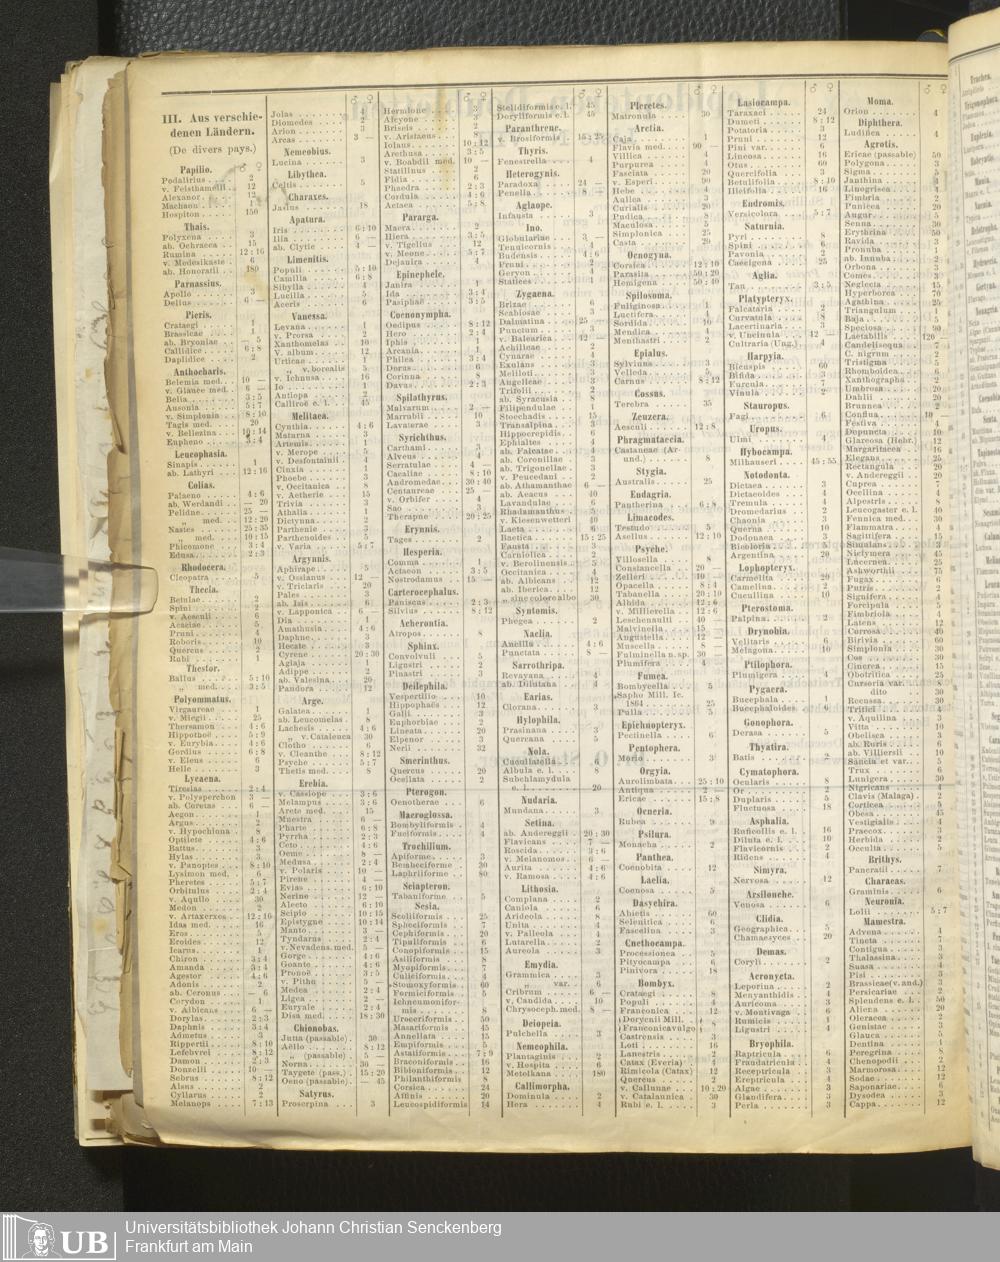 III. Aus verschie-
denen Ländern.
(De divers pays.)
♂ ♀
Papilio.
Podalirius . . . 2
v. Feisthamelii . . 12
Alexanor . . . 12
Machaon . . .
Hospiton . . . 150
Thais.
Polyxena . . . 3
ab. Ochracea . . 15
Rumina . . . 12 : 16
v. Medesikaste . . 6
ab. Honoratii . . 180
Parnassius.
Apollo . . . 3
Delius . . . 6 —
Pieris.
Crataegi . . . 1
Brassicae . . . 1
ab. Bryoniae . . 5
Callidice . . . 6 : 8
Daplidice . . . 2
Anthocharis.
Belemia med. . . 10 —
v. Glauce med. . . 6 —
Belia . . . 3 : 5
Ausonia . . . 5 : 7
v. Simplonia . . 8 : 10
Tagis med. . . 20
v. Bellezina . . 10 : 14
Eupheno . . . 3 : 4
Leucophasia.
Sinapis . . . 1
ab. Lathyri . . . 12 : 16
Colias.
Palaeno . . . 4 : 6
ab. Werdandi . . — 20
Pelidne . . . 25 —
„ med. . . 12 : 20
Nastes . . . 25 : 35
„ med. . . 10 : 15
Phicomone . . . 3 : 4
Edusa . . . 2 : 3
Rhodocera.
Cleopatra . . . 5
Thecla.
Betulae . . . 2
Spini . . . 2
v. Aesculi . . . 6
Acaciae . . . 5
Pruni . . . 4
Roboris . . . 10
Quercus . . . 2
Rubi . . . 1
Thestor.
Ballus . . . 5 : 10
„ med. . . 3 : 5
Polyommatus.
Virgaureae . . . 1
v. Miegii . . . 25
Thersamon . . . 4 : 6
Hippothoë . . . 5 : 9
v. Eurybia . . . 4 : 6
Gordius . . . 6 : 8
v. Eleus . . . 6
Helle . . . 3
Lycaena.
Tiresias . . . 2 : 4
v. Polysperchon . 3 —
ab. Coretas . . 6 —
Aegon . . . 1
Argus . . . 2
v. Hypochiona . . 8
Optilete . . . 4 : 6
Battus . . . 3
Hylas . . . 3
v. Panoptes . . 8 : 10
Lysimon med. . . 6
Pheretes . . . 5 : 7
Orbitulus . . . 2 : 4
v. Aquilo . . . 30
Medon . . . 2
v. Artaxerxes . . 12 : 16
Idas med. . . 16
Eros . . . 5
Eroides . . . 12
Icarus . . . 1
Chiron . . . 3 : 4
Amanda . . . 3 : 4
Agestor . . . 4 : 6
Adonis . . . 2
ab. Ceronus . . — 6
Corydon . . . 1
v. Albicans . . 6 —
Dorylas . . . 2 : 3
Daphnis . . . 3 : 4
Admetus . . . 3
Rippertii . . . 8 : 10
Lefebvrei . . . 8 : 12
Damon . . . 2 : 3
Donzelii . . . 10 —
Sebrus . . . 8 : 12
Alsus . . . 2
Cyllarus . . . 2
Melanops . . . 7 : 13
♂ ♀
Jolas . . . 4
Diomedes . . . 2
Arion . . . 3
Arcas . . . 3 —
Nemeobius.
Lucina . . . 3
Libythea.
Celtis . . . 5
Charaxes.
Jasius . . . 18
Apatura.
Iris . . . 6 : 10
Ilia . . . 6 —
ab. Clytie . . . 4 —
Limenitis.
Populi . . . 5 : 10
Camilla . . . 6 : 8
Sibylla . . . 4
Lucilla . . . 5
Aceris . . . 6
Vanessa.
Levana . . . 1
v. Prorsa . . . 2
Xanthomelas . . . 10
V. album . . . 12
Urticae . . . 1
„ v. borealis . 5
v. Ichnusa . . . 16
Io . . . 1
Antiopa . . . 1
Calliroë e. l. . . 45
Melitaea.
Cynthia . . . 4 : 6
Maturna . . . 3
Artemis . . . 1
v. Merope . . . 5
v. Desfontainii . . 4
Cinxia . . . 1
Phoebe . . . 3
v. Occitanica . . 8
v. Aetherie . . . 15
Trivia . . . 3
Athalia . . . 1
Dictynna . . . 2
Parthenie . . . 3
Parthenoides . . 5
v. Varia . . . 5 : 7
Argynnis.
Aphirape . . . 5
v. Ossianus . . 12
v. Triclaris . . 20
Pales . . . 3
ab. Isis . . . 6
v. Lapponica . . 6 —
Dia . . . 1
Amathusia . . . 4 : 6
Daphne . . . 3
Hecate . . . 3
Cyrene . . . 20 : 30
Aglaja . . . 1
Adippe . . . 2
ab. Valesina . . 20
Pandora . . . 12
Arge.
Galatea . . . 1
ab. Leucomelas . . 8
Lachesis . . . 4 : 6
„ v. Cataleuca 30
Clotho . . . 6
v. Cleanthe . . 8 : 12
Psyche . . . 5 : 7
Thetis med. . . 8
Erebia.
v. Cassiope . . 3 : 6
Melampus . . . 3 : 6
Arete med. . . 15
Mnestra . . . 6 —
Pharte . . . 6 : 8
Pyrrha . . . 2 : 3
Ceto . . . 4 : 6
Oeme . . . 8 —
Medusa . . . 2 : 4
v. Polaris . . . 10 —
Pirene . . . 4 —
Evias . . . 6 : 10
Nerine . . . 12 —
Alecto . . . 6 : 10
Scipio . . . 10 : 15
Epistygne . . . 10 : 14
Manto . . . 3 —
Tyndarus . . . 2 : 4
v. Nevadens. med. 5 —
Gorge . . . 4 : 6
Goante . . . 4 : 6
Pronoë . . . 3 : 5
v. Pitho . . . 5 —
Medea . . . 2 : 4
Ligea . . . 2 —
Euryale . . . 2 : 4
Disa med. . . 18 : 30
Chionobas.
Jutta (passable) . 30
Aëllo . . . 8 : 12
„ (passable) . 5 —
Norna . . . 30 —
Taygete (pass.) . 15 : 20
Oeno (passable) . — 45
Satyrus.
Proserpina . . . 3
♂ ♀
Hermione . . . 3
Alcyone . . . 3
Briseis . . . 2
v. Aristaeus . . 8
Iolaus . . . 10 : 12
Arethusa . . . 3 : 5
v. Boabdil med. . 10 —
Statilinus . . . 2
Fidia . . . 6
Phaedra . . . 2 : 3
Cordula . . . 4 : 6
Actaea . . . 5 : 8
Pararga.
Maera . . . 2
Hiera . . . 3 : 5
v. Tigelius . . 12
v. Meone . . . 5 : 7
Dejanira . . . 4
Epinephele.
Janira . . . 1
Ida . . . 3 : 4
Pasiphaë . . . 3 : 5
Coenonympha.
Oedipus . . . 8 : 12
Hero . . . 2 : 4
Iphis . . . 1
Arcania . . . 1
Philea . . . 3 : 4
Dorus . . . 6
Corinna . . . 8
Davus . . . 2 : 3
Spilathyrus.
Malvarum . . . 2 —
Marrubii . . . 10
Lavaterae . . . 3
Syrichthus.
Carthami . . . 3
Alveus . . . 4
Serratulae . . . 4 —
Cacaliae . . . 8 : 10
Andromedae . . . 30 : 40
Centaureae . . . 25 —
v. Orbifer . . . 4
Sao . . . 3
Therapne . . . 20 : 25
Erynnis.
Tages . . . 2
Hesperia.
Comma . . . 1
Actaeon . . . 3 : 5
Nostrodamus . . . 15 —
Carterocephalus.
Paniscus . . . 2 : 3
Silvius . . . 8 : 12
Acherontia.
Atropos . . . 8
Sphinx.
Convolvuli . . . 5
Ligustri . . . 2
Pinastri . . . 3
Deilephila.
Vespertilio . . . 10
Hippophaës . . . 12
Galii . . . 3
Euphorbiae . . . 2
Lineata . . . 20
Elpenor . . . 3
Nerii . . . 32
Smerinthus.
Quercus . . . 20
Ocellata . . . 2
Pterogon.
Oenotherae . . . 6
Macroglossa.
Bombyliformis . . 4
Fuciformis . . . 4
Trochilium.
Apiforme . . . 3
Bembeciforme . . 30
Laphriiforme . . 80
Sciapteron.
Tabaniforme . . . 5
Sesia.
Scoliiformis . . 25
Spheciformis . . 7
Cephiformis . . 20
Tipuliformis . . 6
Conopiformis . . 15
Asiliformis . . 8
Myopiformis . . 7
Culiciformis . . 4
Stomoxyformis . . 60
Formiciformis . . 5
Ichneumonifor-
mis . . . 8
Uroceriformis . . 50
Masariformis . . 45
Annellata . . . 15
Empiformis . . . 5
Astatiformis . . 7 : 9
Braconiformis . . 16
Bibioniformis . . 12
Philanthiformis . 8
Corsica . . . 24
Affinis . . . 20
Leucospidiformis 14
♂ ♀
Stelidiformis e. l. 45
Doryliformis e. l. 45
Paranthrene.
v. Brosiformis . . 15 : 25
Thyris.
Fenestrella . . . 4
Heterogynis.
Paradoxa . . . 24 —
Penella . . . 8 —
Aglaope.
Infausta . . . 3
Ino.
Globulariae . . . 3 —
Tenuicornis . . . 4
Budensis . . . 4 : 6
Pruni . . . 2
Geryon . . . 4
Statices . . . 1
Zygaena.
Brizae . . . 6
Scabiosae . . . 3
Dalmatina . . . 25 —
Punctum . . . 3
v. Balearica . . 12 —
Achilleae . . . 2
Cynarae . . . 4
Exulans . . . 3
Meliloti . . . 3
Angelicae . . . 3
Trifolii . . . 2
ab. Syracusia . . 8
Filipendulae . . . 1
Stoechadis . . . 15
Transalpina . . . 3
Hippocrepidis . . 6
Ephialtes . . . 4
ab. Falcatae . . 4
ab. Coronillae . . 3
ab. Trigonellae . . 3
v. Peucedani . . 2
ab. Athamanthae . 6 —
ab. Aeacus . . . 40
Lavandulae . . . 6
Rhadamanthus . . 5
v. Kiesenwetteri 40
Laeta . . . 6
Baetica . . . 15 : 25
Fausta . . . 3
Carniolica . . . 2
v. Berolinensis . . 5
Occitanica . . . 4
ab. Albicans . . 12
ab. Iberica . . . 12
„ sine colore albo 30
Syntomis.
Phegea . . . 2
Naclia.
Ancilla . . . 4 : 6
Punctata . . . 8 —
Sarrothripa.
Revayana . . . 4
ab. Dilutana . . 4
Earias.
Clorana . . . 3
Hylophila.
Prasinana . . . 3
Quercana . . . 5
Nola.
Cucullatella . . . 6
Albula e. l. . . 8
Subchlamydula
e. l. . . . 20
Nudaria.
Mundana . . . 3
Setina.
ab. Andereggii . . 20 : 30
Flavicans . . . 7 —
Roscida . . . 3 : 6
v. Melanomos . . 6 —
Aurita . . . 4 : 6
v. Ramosa . . . 4 : 6
Lithosia.
Complana . . . 2
Caniola . . . 6
Arideola . . . 8
Unita . . . 4
v. Palleola . . . 4
Lutarella . . . 2
Aureola . . . 3
Emydia.
Grammica . . . 3
„ var. . . 6
Cribrum . . . 6 —
v. Candida . . . 10
Chrysoceph. med. 8 —
Deiopeia.
Pulchella . . . 3
Nemeophila.
Plantaginis . . . 2
v. Hospita . . . 6
Metelkana . . . 180
Callimorpha.
Dominula . . . 2
Hera . . . 4
♂ ♀
Pleretes.
Matronula . . . 30
Arctia.
Caja . . . 1
Flavia med. . . 90 —
Villica . . . 4
Purpurea . . . 4
Fasciata . . . 20
v. Esperi . . . 90
Hebe . . . 4
Aulica . . . 3
Curialis . . . 20
Pudica . . . 8
Maculosa . . . 5
Simplonica . . . 25
Casta . . . 20
Ocnogyna.
Corsica . . . 12 : 10
Parasita . . . 50 : 20
Hemigena . . . 50 : 40
Spilosoma.
Fuliginosa . . . 1
Luctifera . . . 4
Sordida . . . 10
Mendica . . . 4
Menthastri . . . 2
Epialus.
Sylvinus . . . 3
Velleda . . . 5
Carnus . . . 8 : 12
Cossus.
Terebra . . . 35
Zeuzera.
Aesculi . . . 12 : 8
Phragmataecia.
Castaneae (Ar-
und.) . . . 8
Stygia.
Australis . . . 25
Endagria.
Pantherina . . . 6 : 8
Limacodes.
Testudo . . . 5
Asellus . . . 12 : 10
Psyche.
Villosella . . . 8
Constancella . . 20 —
Zelleri . . . 10 —
Opacella . . . 8 : 4
Tabanella . . . 20 : 10
Albida . . . 12 : 6
v. Millierella . . 12 : 6
Leschenaulti . . . 40 —
Malvinella . . . 15 —
Angustella . . . 12 —
Muscella . . . 8 —
Fulminella n. sp. 30 —
Plumifera . . . 4 —
Fumea.
Bombycella . . . 5
Sapho Mill. Ic.
1864 . . . 25
Pulla . . . 5
Epichnopteryx.
Pectinella . . . 6
Pentophera.
Morio . . . 3
Orgyia.
Aurolimbata . . . 25 : 10
Antiqua . . . 2 —
Ericae . . . 15 : 8
Ocneria.
Rubea . . . 9
Psilura.
Monacha . . . 2
Panthea.
Coenobita . . . 12
Laelia.
Coenosa . . . 5
Dasychira.
Abietis . . . 60
Selenitica . . . 6
Fascelina . . . 3
Cnethocampa.
Processionea . . . 5
Pityocampa . . . 6
Pinivora . . . 18
Bombyx.
Crataegi . . . 8
Populi . . . 4
Franconica . . . 12
(Dorycnii Mill.
(Franconica vulgo 8
Castrensis . . . 3
Loti . . . 16
Lanestris . . . 2
Catax (Everia) . . 4
Rimicola (Catax) 12
Quercus . . . 2
v. Callunae . . . 10 : 20
v. Catalaunica . . 30
Rubi e. l. . . . 3
♂ ♀
Lasiocampa.
Taraxaci . . . 24
Dumeti . . . 8 : 12
Potatoria . . . 3
Pruni . . . 12
Pini var. . . . 6
Lineosa . . . 16
Otus . . . 60
Quercifolia . . . 3
Betulifolia . . . 8 : 10
Ilicifolia . . . 16
Endromis.
Versicolora . . . 5 : 7
Saturnia.
Pyri . . . 8
Spini . . . 6
Pavonia . . . 2
Caecigena . . . 25
Aglia.
Tau . . . 3 : 5
Platypteryx.
Falcataria . . . 2
Curvatula . . . 8
Lacertinaria . . . 3
v. Uncinula . . . 12 —
Cultraria (Ung.) . 4
Harpyia.
Bicuspis . . . 60
Bifida . . . 3
Furcula . . . 7
Vinula . . . 2
Stauropus.
Fagi . . . 6
Uropus.
Ulmi . . . 4
Hybocampa.
Milhauseri . . . 45 : 55
Notodonta.
Dictaea . . . 3
Dictaeoides . . . 4
Tremula . . . 4
Dromedarius . . . 2
Chaonia . . . 3
Querna . . . 10
Dodonaea . . . 3
Bicoloria . . . 4
Argentina . . . 20
Lophopteryx.
Carmelita . . . 20
Camelina . . . 2
Cucullina . . . 10
Pterostoma.
Palpina . . . 2
Drynobia.
Velitaris . . . 6
Melagona . . . 10
Ptilophora.
Plumigera . . . 4
Pygaera.
Bucephala . . . 1
Bucephaloides .
Gonophora.
Derasa . . . 5
Thyatira.
Batis . . . 4
Cymatophora.
Ocularis . . . 8
Or . . . 2
Duplaris . . . 5
Fluctuosa . . . 18
Asphalia.
Ruficollis e. l. . 16
Diluta e. l. . . 10
Flavicornis . . . 2
Ridens . . . 4
Simyra.
Nervosa . . . 12
Arsilonche.
Venosa . . . 6
Clidia.
Geographica . . . 5
Chamaesyces . . . 20
Demas.
Coryli . . . 2
Acronycta.
Leporina . . . 2
Menyanthidis . . 4
Auricoma . . . 3
v. Montivaga . . 6
Rumicis . . . 1
Ligustri . . . 4
Bryophila.
Raptricula . . . 6
Fraudatricula . . 4
Receptricula . . . 3
Ereptricula . . . 4
Algae . . . 3
Glandifera . . . 3
Perla . . . 3
♂ ♀
Moma.
Orion . . . 4
Diphthera.
Ludifica . . . 4
Agrotis.
Ericae (passable) 50
Polygona . . . 3
Signum . . . 5
Janthina . . . 4
Linogrisea . . . 4
Fimbria . . . 2
Punicea . . . 20
Augur . . . 5
Senna . . . 30
Erythrina . . . 50
Ravida . . . 3
Pronuba . . . 1
ab. Innuba . . . 2
Orbona . . . 3
Comes . . . 3
Neglecta . . . 15
Hyperborea . . . 70
Agathina . . . 25
Triangulum . . . 1
Baja . . . 5
Speciosa . . . 90
Laetabilis . . . 120
Candelisequa . . 7
C. nigrum . . . 2
Tristigma . . . 5
Rhomboidea . . . 6
Xanthographa . . 2
Umbrosa . . . 20
Dahlii . . . 20
Brunnea . . . 2
Conflua . . . 10
Festiva . . . 4
Depuncta . . . 10
Glareosa (Hebr.) 12
Margaritacea . . 16
Elegans . . . 25
Rectangula . . . 20
v. Andereggii . . 20
Cuprea . . . 7
Ocellina . . . 4
Alpestris . . . 4
Leucogaster e. l. 40
Fennica med. . . 30
Flammatra . . . 4
Sagittifera . . . 15
Simulans . . . 3
Nictymera . . . 45
Lucernea . . . 25
Ashworthii . . . 75
Fugax . . . 6
Putris . . . 2
Signifera . . . 4
Forcipula . . . 5
Fimbriola . . . 4
Latens . . . 12
Cursosa . . . 40
Birivia . . . 60
Simplonia . . . 30
Cos . . . 30
Cinerea . . . 15
Obotritica . . . 25
Cursoria var. . . 3
dito . . . 30
Recussa . . . 30
Tritici . . . 1
v. Aquilina . . . 3
Vitta . . . 10
Obelisca . . . 3
ab. Ruris . . . 6
ab. Villiersii . . 10
Sancta et var. . . 5
Trux . . . 6
Lunigera . . . 30
Nigricans . . . 4
Clavis (Malaga) . 2
Corticea . . . 5
Obesa . . . 45
Vestigialis . . . 4
Praecox . . . 3
Herbida . . . 2
Occulta . . . 5
Brithys.
Pancratii . . . 7
Characas.
Graminis . . . 6
Neuronia.
Lolii . . . 5 : 7
Mamestra.
Advena . . . 4
Tincta . . . 7
Contigua . . . 3
Thalassina . . . 3
Suasa . . . 3
Pisi . . . 3
Brassicae (v. and.) 3
Persicariae . . . 2
Splendens e. l. . 50
Aliena . . . 20
Oleracea . . . 2
Genistae . . . 3
Glauca . . . 5
Dentina . . . 1
Peregrina . . . 8
Chenopodii . . . 2
Marmorosa . . . 12
Sodae . . . 12
Saponariae . . . 6
Dysodea . . . 3
Cappa . . . 12
UB
Universitätsbibliothek Johann Christian Senckenberg
Frankfurt am Main